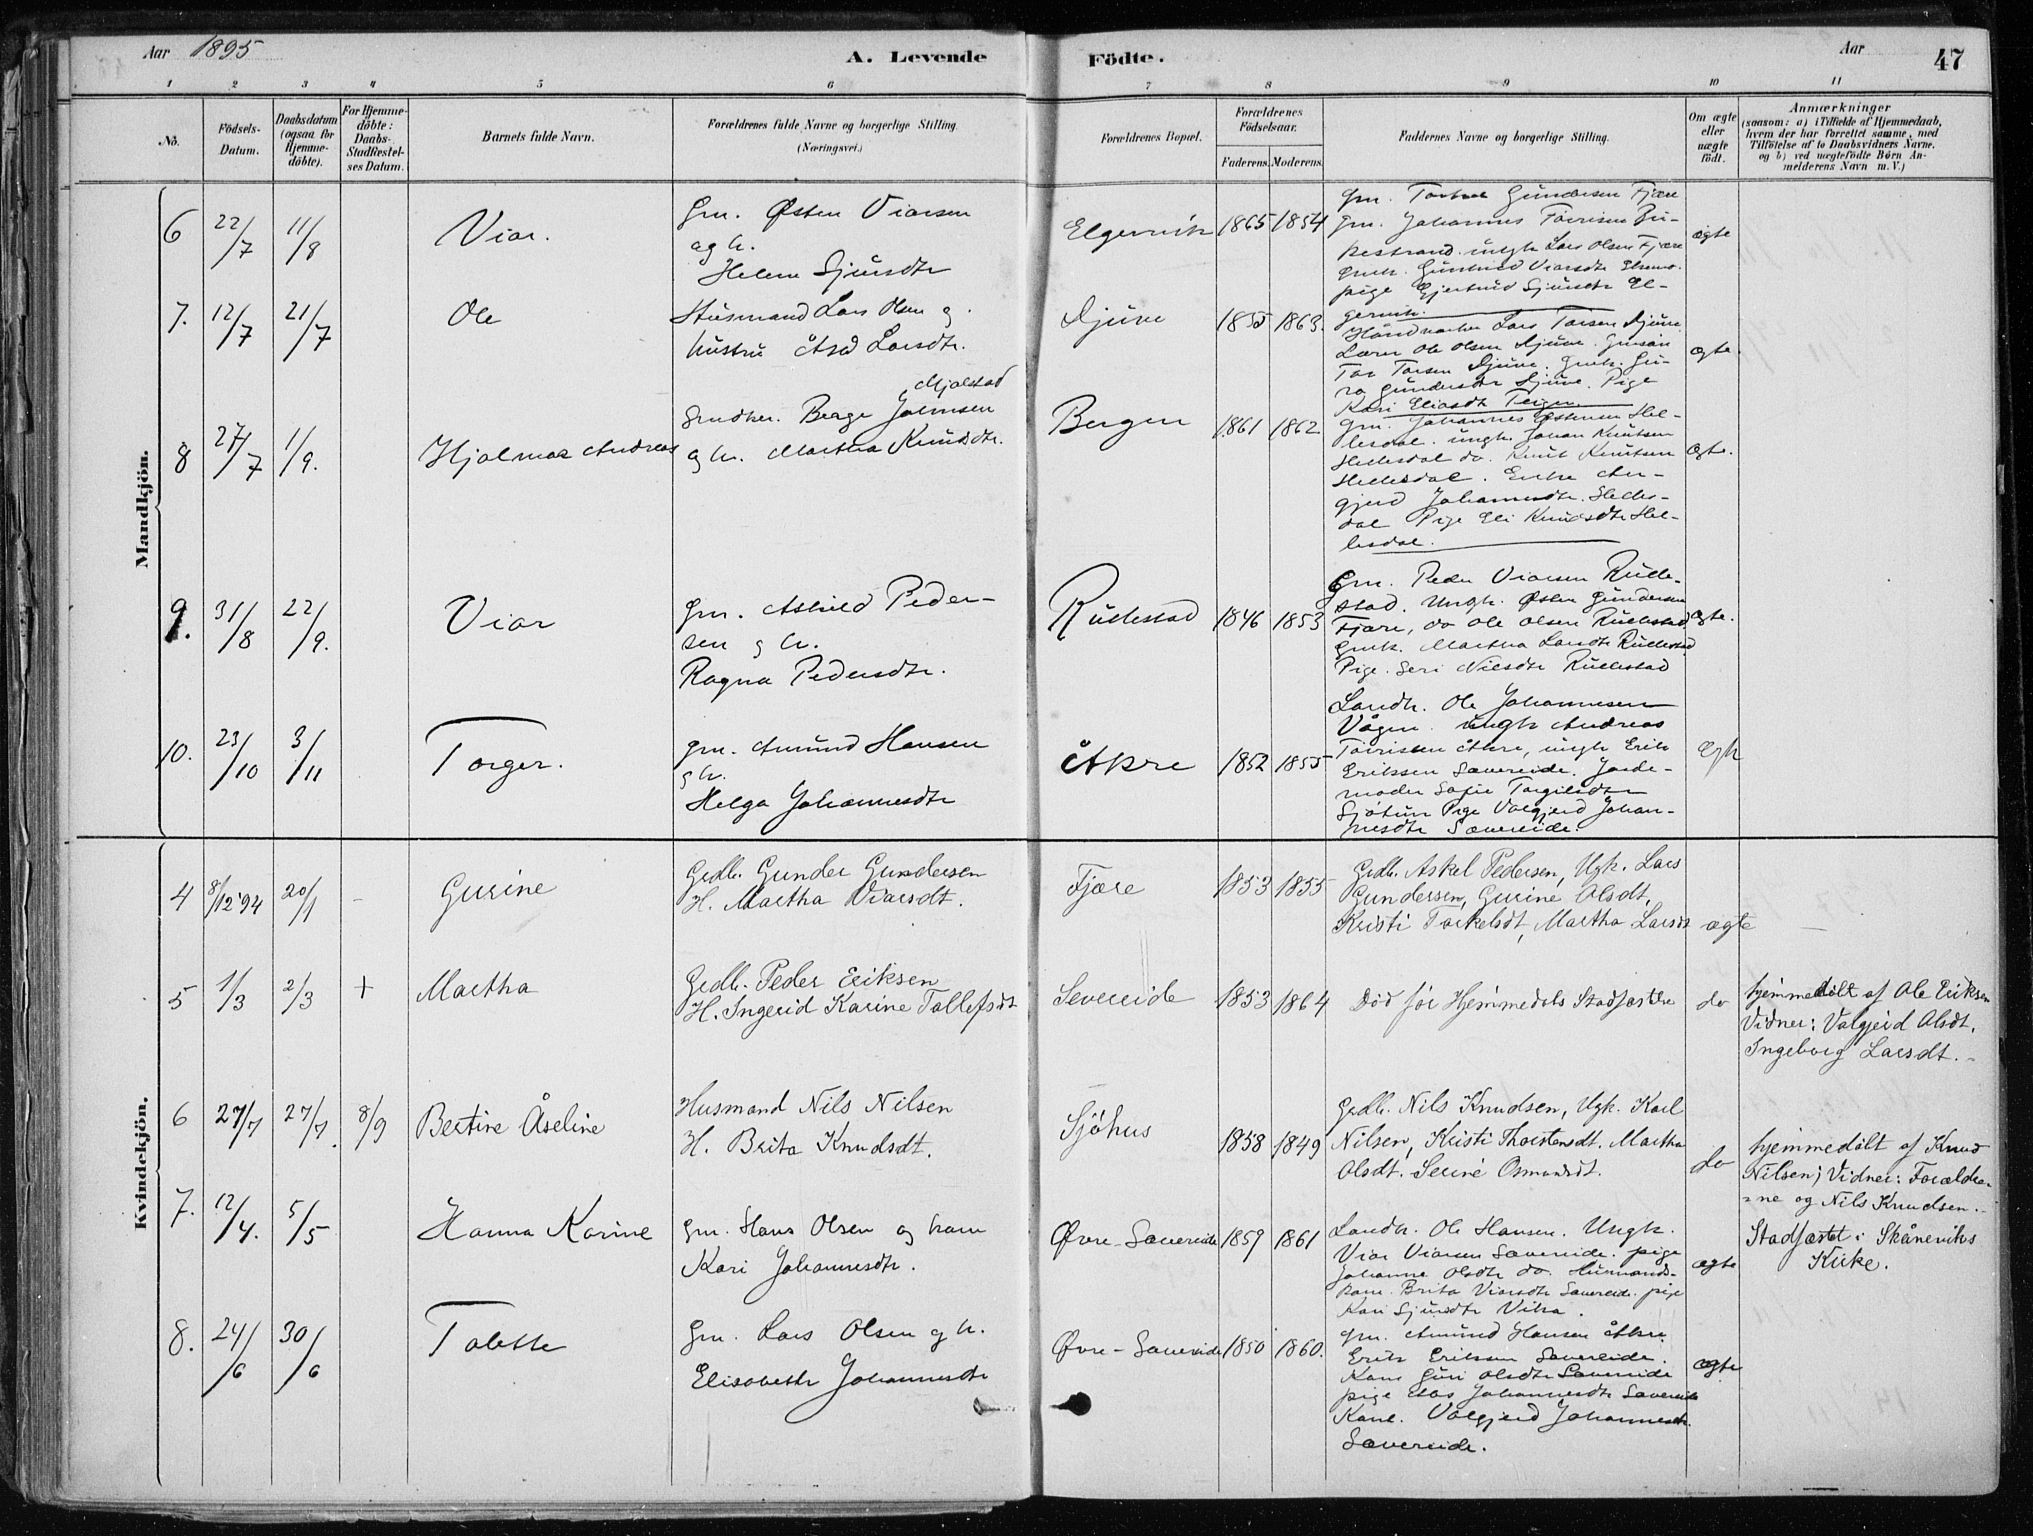 Aar 1895
A. Levende
Födte.
Aar
47
1 2 3 4 5 6 7 8 9 10 11
No.
Födsels-
Datum.
Daabsdatum
(ogsaa for
Hjemme-
döbte).
For Hjemme-
döbte:
Daabs-
Stadfæstel-
ses Datum.
Barnets fulde Navn.
Forældrenes fulde Navne og borgerlige Stilling.
(Næringsvei.)
Forældrenes Bopæl.
Forældrenes
Födselsaar.
Faderens. Moderens.
Faddernes Navne og borgerlige Stilling.
Om ægte
eller
uægte
födt.
Anmærkninger
(saasom: a) i Tilfælde af Hjemmedaab,
hvem der har forrettet samme, med
Tilföielse af to Daabsvidners Navne,
og b) ved uægtefödte Börn An-
melderens Navn m. V.)
Mandkjön.
6 22/7 11/8 Viar.
Gm. Østen Viarsen
og h.
Helena Sjursdtr
Elgervik 1865 1854
Gm. Gundersen Fjære
Gm. Johannes
ungk Lars Olsen Fjære
Viarsdtr
pige Gjertrud Sjursdtr El-
gervik.
ægte
7. 12/7 21/7 Ole
Husmand Lars Olsen og
hustru Åsa Larsdtr.
Djuve 1855 1863.
Lars Torsen Djuve
Lærer Ole Olsen Djuve
Tor Torsen Djuve. Gmk. Gu-
ro Gundersdtr Djuve. Pige
Kari Eliasdtr Teigen
ægte.
8 27/7 1/9. Hjalmar Andreas
Mjelstad
Snedker. Berge Johnsen
og h. Martha Knudsdtr.
Bergen 1861 1862
Gm. Johannes Østensen Hel-
lesdal. ungk. Johan Knutsen
Hellesdal do. Knut Knutsen
Hellesdal. Enke An-
gjerd Johannesdtr. Helles-
dal Pige Eli Knudsdtr Hel-
lesdal.
ægte.
9. 31/8 22/9. Viar
Gm. Askild Peder-
sen og h.
Ragna Pedersdtr.
Rullestad 1846 1853
Gm. Peder Viarsen Rulle-
stad. Ungk. Østen Gundersen
Fjære, do Ole Olsen Rullestad
Gmk. Martha Larsdtr Rullestad
Pige. Seri Nilsdtr Rullestad
ægte.
10. 23/10 3/11 Torger.
Gm. Amund Hansen
og h.
Helga Johannesdtr
Åkre 1852 1855
Landh. Ole Johannessen
Vågen. ungk Andreas
Åkre, ungk Erik
Eriksen Sævereide. Jorde-
moder Sofie Torgilsdtr
Sjötun Pige Valgjerd Johan-
nesdtr Sævereide.
ægte
Kvindekjön.
4 8/12 94 20/1 - Gurine
Grdb. Gunder Gundersen
H. Martha Viarsdt.
Fjære 1853 1855
Grdb. Askel Pedersen, Ugk. Lars
Gundersen, Gurine Olsdt,
Kristi Torkelsdt, Martha Larsdt
ægte
5 1/3 2/3 + Martha
Grdb. Peder Eriksen
H. Ingerid Karine Tollefsdt
Severeide 1853 1864
Död før Hjemmedaabs Stadfæstelse
do
hjemmedöbt af Ole Eriksen
Vidner: Valgjerd Olsdt,
Ingeborg Larsdt.
6 27/7 27/7. 8/9 Bertine Åseline
Husmand Nils Nilsen
H. Brita Knudsdt.
Sjöhus 1858 1849
Grdb. Nils Knudsen, Ugk. Karl
Nilsen, Kristi Thorstensdt. Martha
Olsdt. Serine Osmundsdt.
do
hjemmedöbt af Knud
Nilsen; Vidner: Forældre-
ne og Nils Knudsen.
Stadfæstet i Skåneviks
Kirke.
7. 12/4. 5/5 Hanna Karine
Gm. Hans Olsen og kone
Kari Johannesdtr.
Øvre-Sævereide 1859 1861
Landh. Ole Hansen. Ungk.
Viar Viarsen Sævereide. pige
Johanne Olsdtr do. Husmands-
kone. Brita Viarsdtr Sævereide. pige
Kari Sjursdtr Vika.
ægte
8. 24/6 30/6 Tolette
Gm. Lars Olsen og h.
Elisabeth Johannesdtr
Øvre-Sævereide 1850 1860.
Gm. Amund Hansen Åkre.
Erik Eriksen Sævereide.
Kone Guri Olsdtr Sævereide
pige Johannesdtr Sævereide
Kone. Valgjerd Johannesdtr.
Sævereide.
ægte